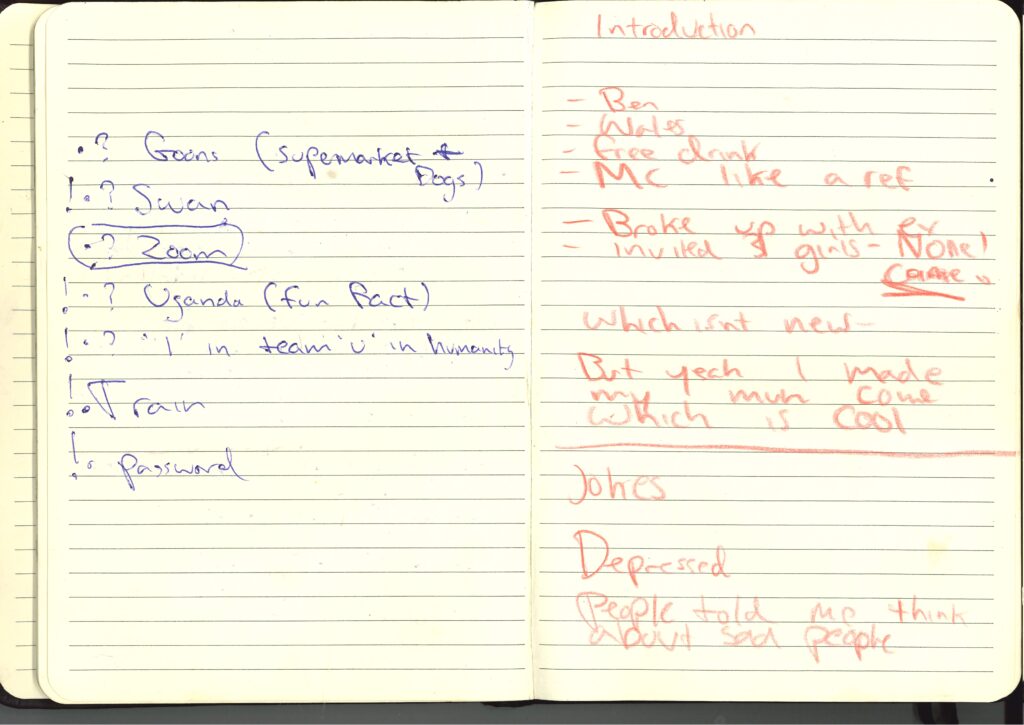 ·? Goons (supermarket +
Dogs)
!·? Swan
·? Zoom
!·? Uganda (fun fact)
!·? "I" in team "u" in humanity
!· Train
!· Password
Introduction
- Ben
- Wales
- free drink
- MC like a ref
- Broke up with ex
- invited girls - NONE!
came
which isnt new -
But yeah I made
my mum come
which is cool
Jokes
Depressed
People told me think
about sad people